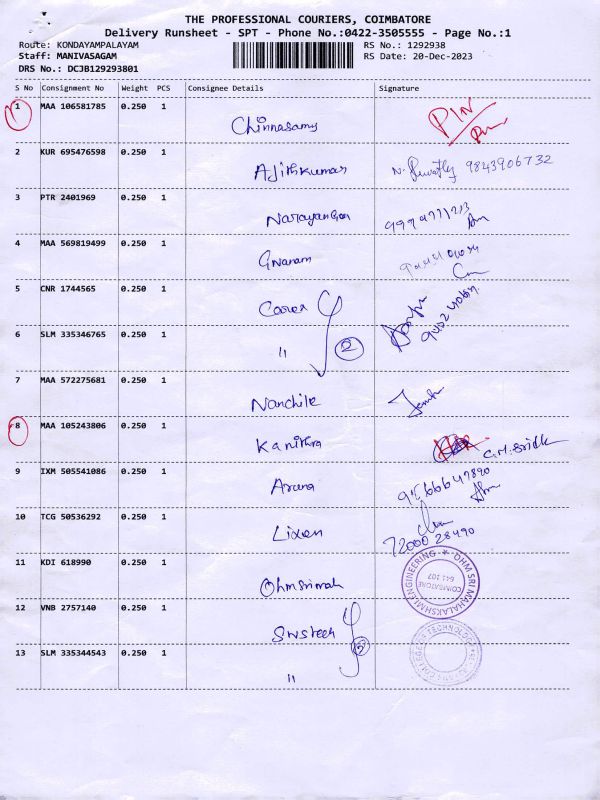 THE PROFESSIONAL COURIERS, COIMBATORE
Delivery Runsheet - SPT - Phone No.:0422-3505555 - Page No.:1
Route: KONDAYAMPALAYAM
RS No.: 1292938
Staff: MANIVASAGAM
RS Date: 20-Dec-2023
DRS No.: DCJB129293801
S No Consignment No Weight PCS Consignee Details Signature
1 MAA 106581785 0.250 1 Chinnasamy PIN
2 KUR 695476598 0.250 1 Ajithkumar 9843906732
3 PTR 2401969 0.250 1 Narayanan
4 MAA 569819499 0.250 1 Gnanam
5 CNR 1744565 0.250 1 Carer
6 SLM 335346765 0.250 1 " 2
7 MAA 572275681 0.250 1 Nanchile
8 MAA 105243806 0.250 1 Kanithra
9 IXM 505541086 0.250 1 Aruna
10 TCG 50536292 0.250 1 Lixon 72000 28490
11 KDI 618990 0.250 1 Ohmsrimah
OHM SRI MAHALAKSHMI ENGINEERING
COIMBATORE
641 107
12 VNB 2757140 0.250 1
13 SLM 335344543 0.250 1 "